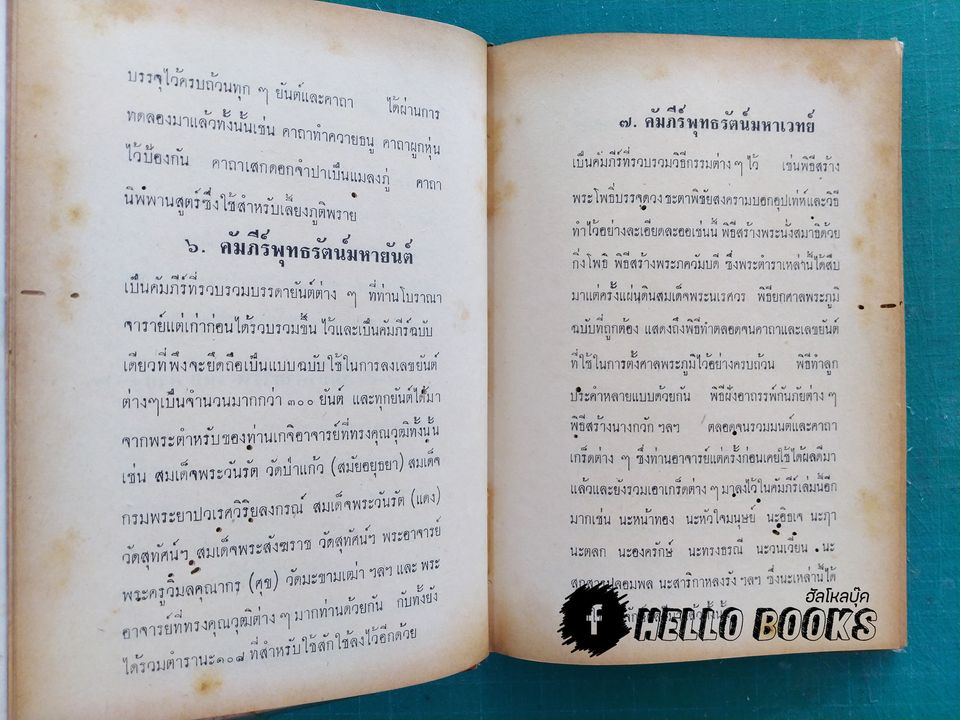 บรรจุไว้ครบถ้วนทุก ๆ ยันต์และคาถา ได้ผ่านการ
ทดลองมาแล้วทั้งนั้นเช่น คาถาทำควายธนู คาถาผูกหุ่น
ไว้ป้องกัน คาถาเสกดอกจำปาเป็นแมลงภู่ คาถา
นิพพานสูตร์ซึ่งใช้สำหรับเลี้ยงภูติพราย
๖. คัมภีร์พุทธรัตน์มหายันต์
เป็นคัมภีร์ที่รวบรวมบรรดายันต์ต่าง ๆ ที่ท่านโบราณา
จาราย์แต่เก่าก่อนได้รวบรวมขึ้น ไว้และเป็นคัมภีร์ฉบับ
เดียวที่พึงจะยึดถือเป็นแบบฉบับ ใช้ในการลงเลขยันต์
ต่างๆเป็นจำนวนมากกว่า ๓๐๐ ยันต์ และทุกยันต์ได้มา
จากพระตำหรับของท่านเกจิอาจารย์ที่ทรงคุณวุฒิทั้งนั้น
เช่น สมเด็จพระวันรัต วัดป่าแก้ว (สมัยอยุธยา) สมเด็จ
กรมพระยาปวเรศวิริยลงกรณ์ สมเด็จพระวันรัต (แดง)
วัดสุทัศน์ฯ สมเด็จพระสังฆราช วัดสุทัศน์ฯ พระอาจารย์
พระครูวิมลคุณากร (ศุข) วัดมะขามเฒ่า ฯลฯ และ พระ
อาจารย์ที่ทรงคุณวุฒิต่าง ๆ มากท่านด้วยกัน กับทั้งยัง
ได้รวมตำรานะ๑๐๘ ที่สำหรับใช้สักใช้ลงไว้อีกด้วย
๗. คัมภีร์พุทธรัตน์มหาเวทย์
เป็นคัมภีร์ที่รวบรวมวิธีกรรมต่าง ๆ ไว้ เช่นพิธีสร้าง
พระโพธิ์บรรจุดวง ชะตาพิชัยสงครามบอกอุปเท่ห์และวิธี
ทำไว้อย่างละเอียดละออเช่นนี้ พิธีสร้างพระนั่งสมาธิด้วย
กิ่งโพธิ พิธีสร้างพระภควัมบดี ซึ่งพระตำราเหล่านี้ได้สืบ
มาแต่ครั้งแผ่นดินสมเด็จพระนเรศวร พิธียกศาลพระภูมิ
ฉบับที่ถูกต้อง แสดงถึงพิธีทำตลอดจนคาถาและเลขยันต์
ที่ใช้ในการตั้งศาลพระภูมิไว้อย่างครบถ้วน พิธีทำลูก
ประคำหลายแบบด้วยกัน พิธีฝังอาถรรพ์กันภัยต่าง ๆ
พิธีสร้างนางกวัก ฯลฯ ตลอดจนรวมมนต์และคาถา
เกร็ดต่าง ๆ ซึ่งท่านอาจารย์แต่ครั้งก่อนเคยใช้ได้ผลดีมา
แล้วและยังรวมเอาเกร็ดต่าง ๆ มาลงไว้ในคัมภีร์เล่มนี้อีก
มากเช่น นะหน้าทอง นะหัวใจมนุษย์ นะอิธเจ นะภา
นะตลก นะองครักษ์ นะทรงธรณี นะวนเวียน นะ
ปลอมพล นะสาริกาหลงรัง ฯลฯ ซึ่งนะเหล่านี้ได้
ฮัลโหลบุ๊ค
f HELLO BOOKS